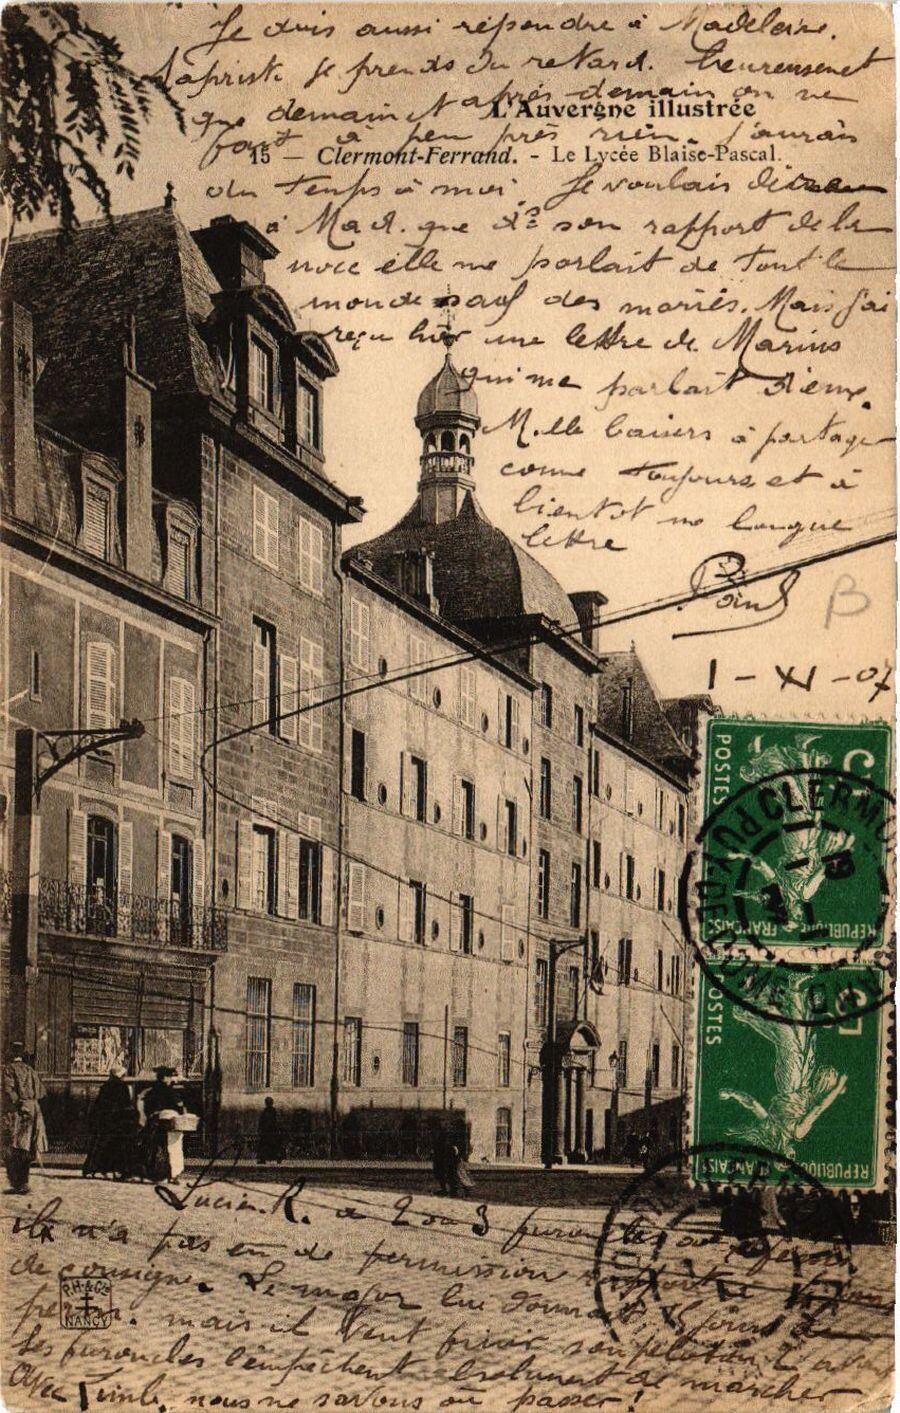 Je dois aussi répondre à Madeleine.
Sapristi je prends du retard. heureusement
que demain et après demain on ne
L'Auvergne illustrée
fait à peu près rien. j'aurais
15 — Clermont-Ferrand. - Le Lycée Blaise-Pascal.
du temps à moi Je voulais dire
à Mad. que ds son rapport de la
noce elle me parlait de tout le
monde sauf des mariés. Mais j'ai
reçu hier une lettre de Marius
qui me parlait d'eux.
Mille baisers à partager
comme toujours et à
bientot une longue
lettre
B
1 - XI - 07
POSTES
RÉPUBLIQUE FRANÇAISE
5
CLERMONT-FERRAND
PUY-DE-DOME
POSTES
RÉPUBLIQUE
5
Lucien R. a 2 ou 3 furoncles aux fesses
il n'a pas eu de permission
de consigne. Le major lui donnait 15 jours de
perm. mais il veut finir son peloton avant
Ses furoncles l'empêchent de marcher
PH. & Cie
NANCY
Avec nous ne savons où passer!